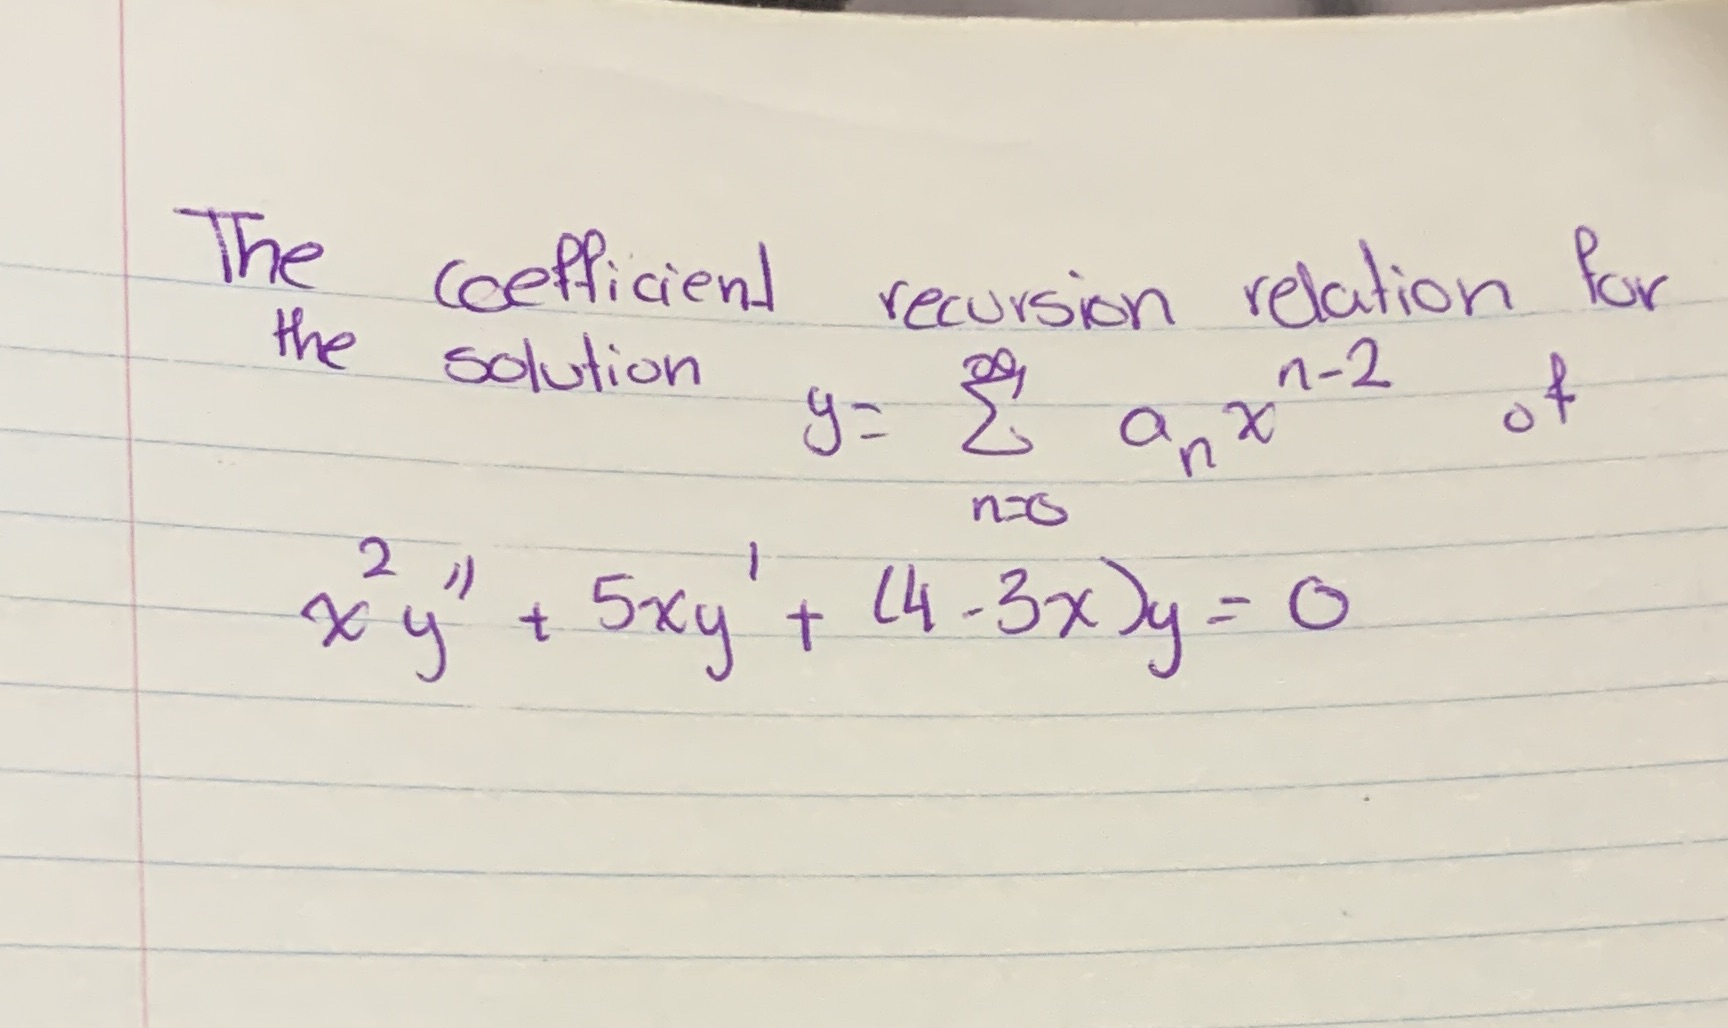 The coefficient recursion relation for
the solution y = ∑_{n=0}^{∞} a_n x^{n-2} of
x^2 y'' + 5xy' + (4 - 3x)y = 0